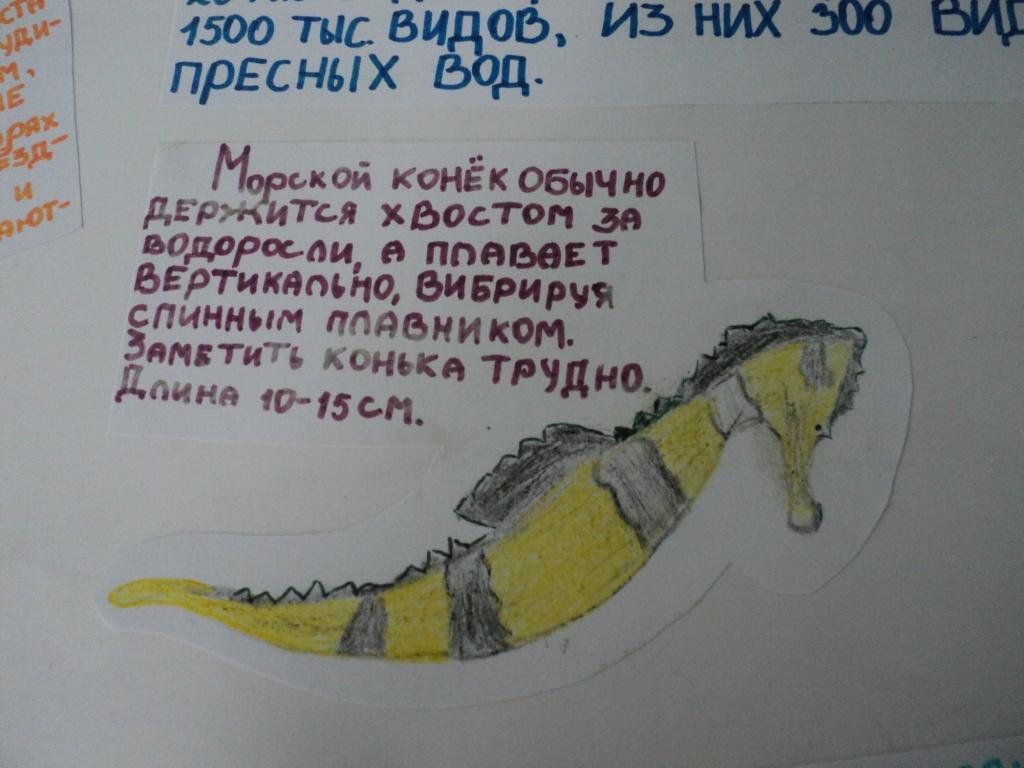 1500 ТЫС. ВИДОВ, ИЗ НИХ 300 ВИД
ПРЕСНЫХ ВОД.
УДИ-
М,
ЗД-
И
АЮТ-
Морской конёк обычно
держится хвостом за
водоросли, а плавает
вертикально, вибрируя
спинным плавником.
Заметить конька трудно.
Длина 10-15 см.